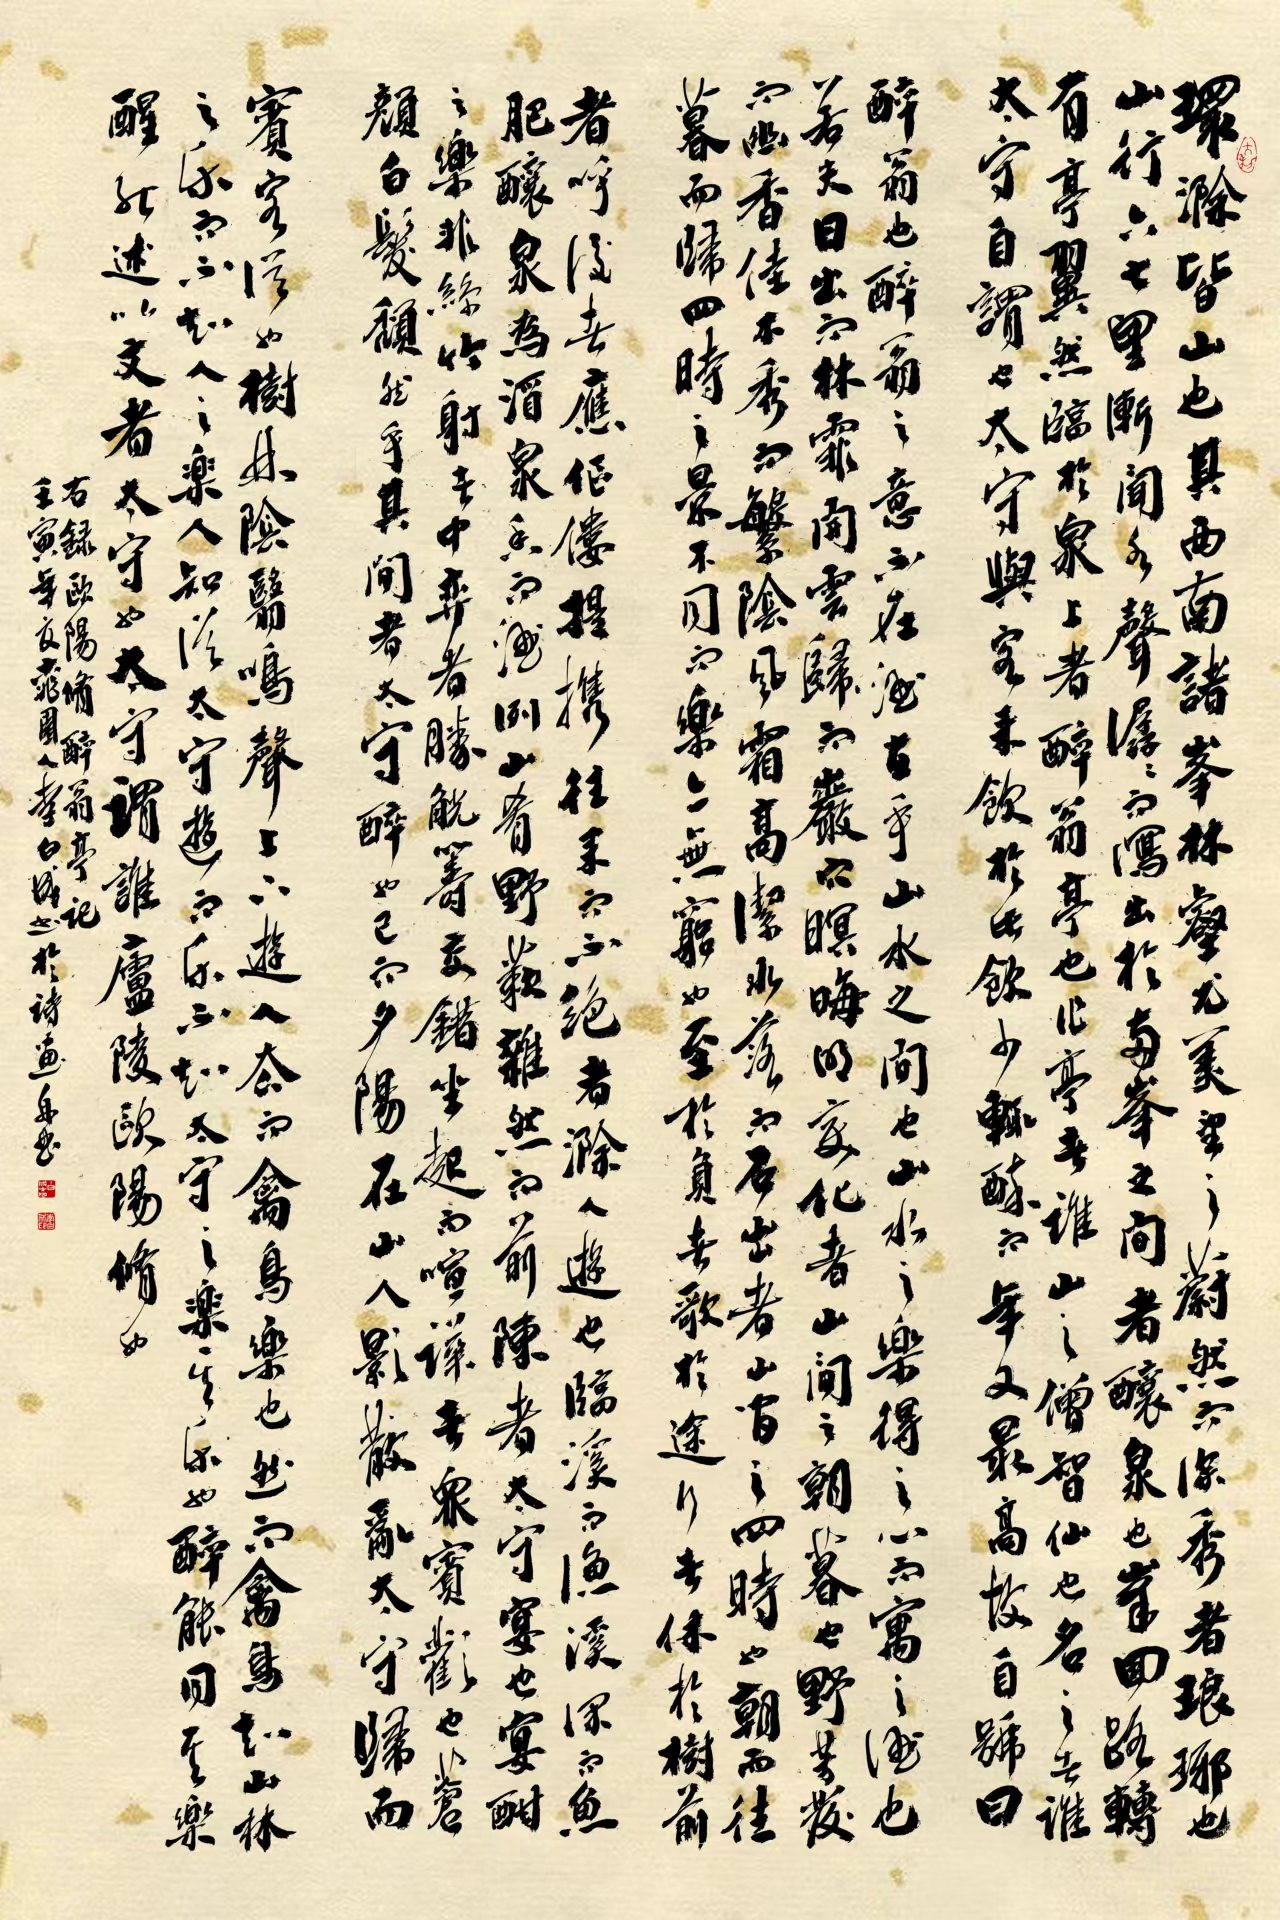 環滁皆山也其西南諸峯林壑尤美望之蔚然而深秀者琅琊也
山行六七里漸聞水聲潺々而瀉出於兩峯之間者釀泉也峯回路轉
有亭翼然臨於泉上者醉翁亭也作亭者誰山之僧智仙也名之者誰
太守自謂也太守與客来飲於此飲少輒醉而年又最高故自號曰
醉翁也醉翁之意不在酒在乎山水之间也山水之樂得之心而寓之酒也
若夫日出而林霏開雲歸而巖穴暝晦明変化者山间之朝暮也野芳發
而幽香佳木秀而繁陰風霜高潔水落而石出者山间之四時也朝而往
暮而歸四時之景不同而樂亦無窮也至於負者歌於途行者休於樹前
者呼後者應傴僂提携往来而不絶者滁人遊也臨溪而漁溪深而魚
肥釀泉為酒泉香而酒洌山肴野蔌雜然而前陳者太守宴也宴酣
之樂非絲竹射者中弈者勝觥籌交錯坐起而喧譁者衆賓歡也蒼
顔白髮頹然乎其间者太守醉也已而夕陽在山人影散亂太守歸而
賓客從也樹林陰翳鳴聲上下遊人去而禽鳥樂也然而禽鳥知山林
之樂而不知人之樂人知從太守遊而樂而不知太守之樂其樂也醉能同其樂
醒能述以文者太守也太守謂誰廬陵歐陽脩也
右錄歐陽脩醉翁亭記
壬寅年夜霏園人李白成书於詩画舟書